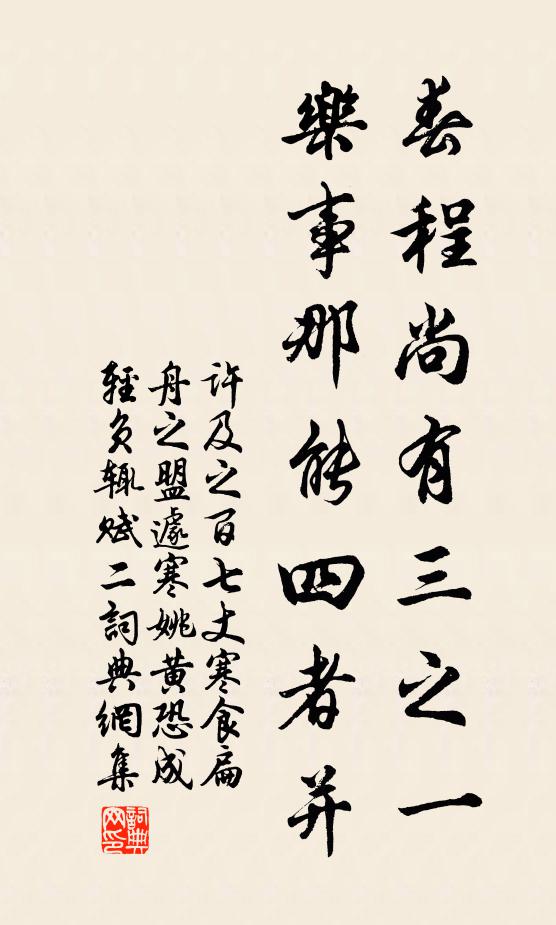 春程尚有三之一
樂事那能四者并
許及之百七丈寒食扁
舟之盟遽寒姚黄恐成
輕負輒賦二詞典網集
詞典網印